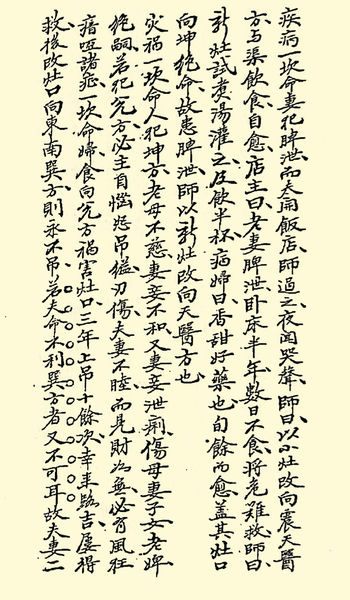 疾病一坎命妻犯脾泄而夫開飯店師過之夜聞哭聲師曰以小灶改向震天醫
方与渠飲食自愈店主曰老妻脾泄卧床半年数日不食將危難救師曰
新灶試煮湯灌之及飲半杯病婦曰香甜好藥也旬餘而愈盖其灶口
向坤絶命故患脾泄師以新灶改向天醫方也
災禍一坎命人犯坤方老母不慈妻妾不和又妻妾泄痢傷母妻子女老婢
絶嗣若犯兌方必主自惱怒吊縊刃傷夫妻不睦而見財為無必有風狂
瘖啞諸症一坎命婦食向兌方禍害灶口三年上吊十餘次幸来路吉屡得
救後改灶口向東南巽方則永不吊若夫命不利巽方者又不可耳故夫妻二